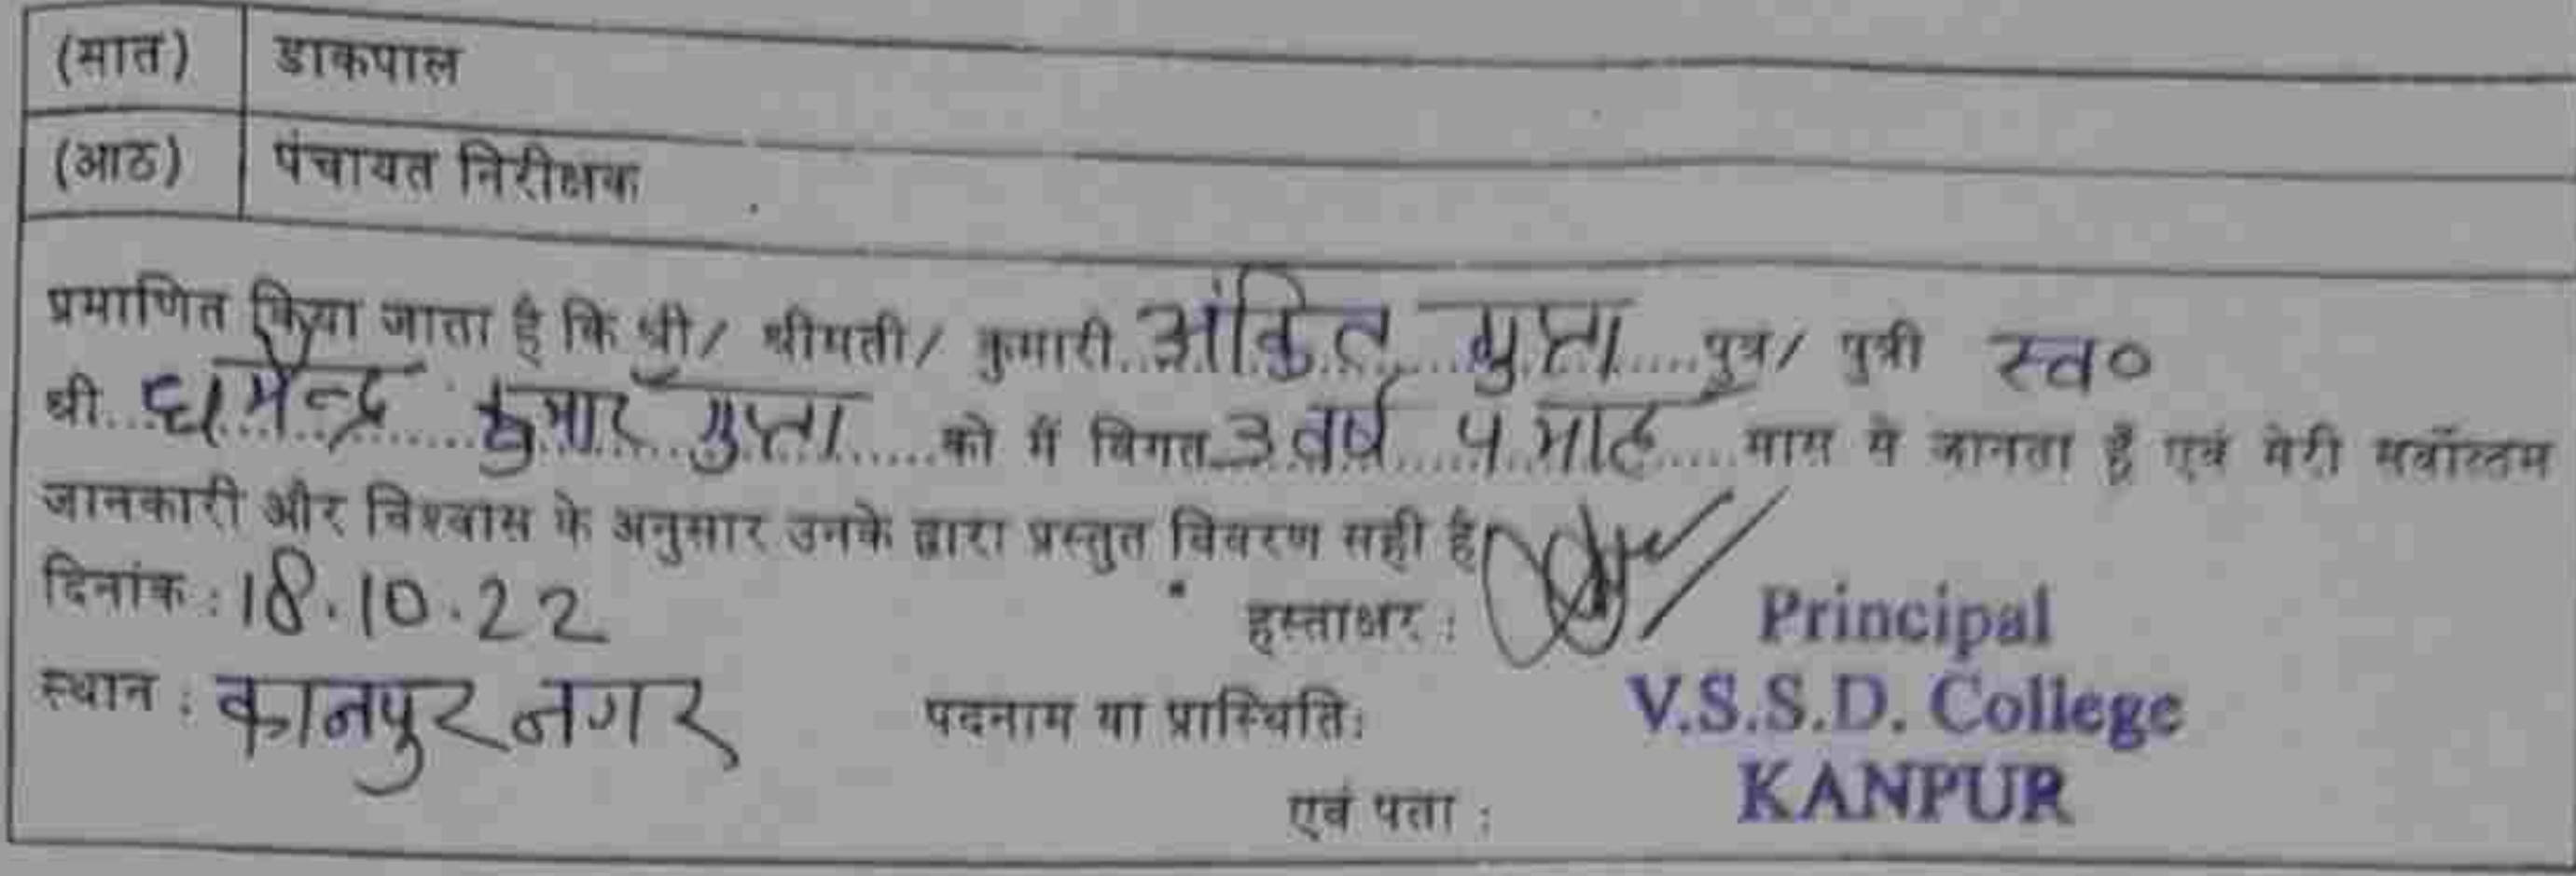 (सात) डाकपाल
(आठ) पंचायत निरीक्षक
प्रमाणित किया जाता है कि श्री/ श्रीमती/ कुमारी..अंकित गुप्ता.....पुत्र/ पुत्री स्व०
श्री...धर्मेन्द्र कुमार गुप्ता......को मैं विगत..3 वर्ष 4 माह....मास से जानता हूँ एवं मेरी सर्वोत्तम
जानकारी और विश्वास के अनुसार उनके द्वारा प्रस्तुत विवरण सही है
दिनांक : 18.10.22
हस्ताक्षर :
Principal
स्थान : कानपुर नगर
पदनाम या प्रास्थिति:
V.S.S.D. College
एवं पता :
KANPUR